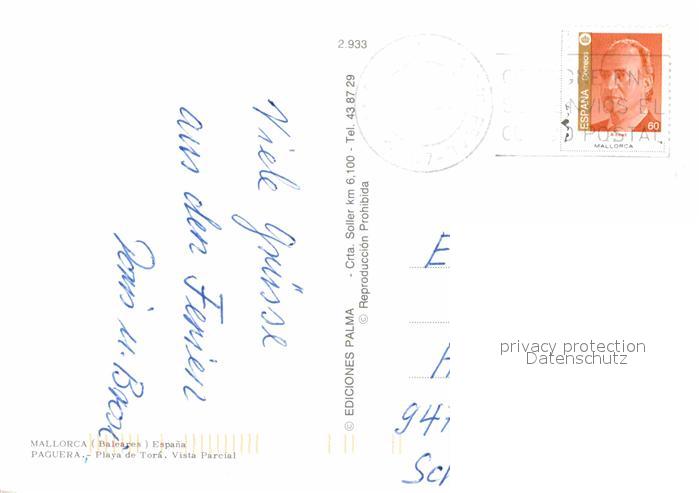 2.933
ESPAÑA
Correos
60
MALLORCA
Viele Grüsse
aus den Ferien
© EDICIONES PALMA - Crta. Soller km 6,100 - Tel. 43 87 29
© Reproducción Prohibida
E
privacy protection
Datenschutz
941
Sch
MALLORCA (Baleares) España
PAGUERA.- Playa de Torá. Vista Parcial